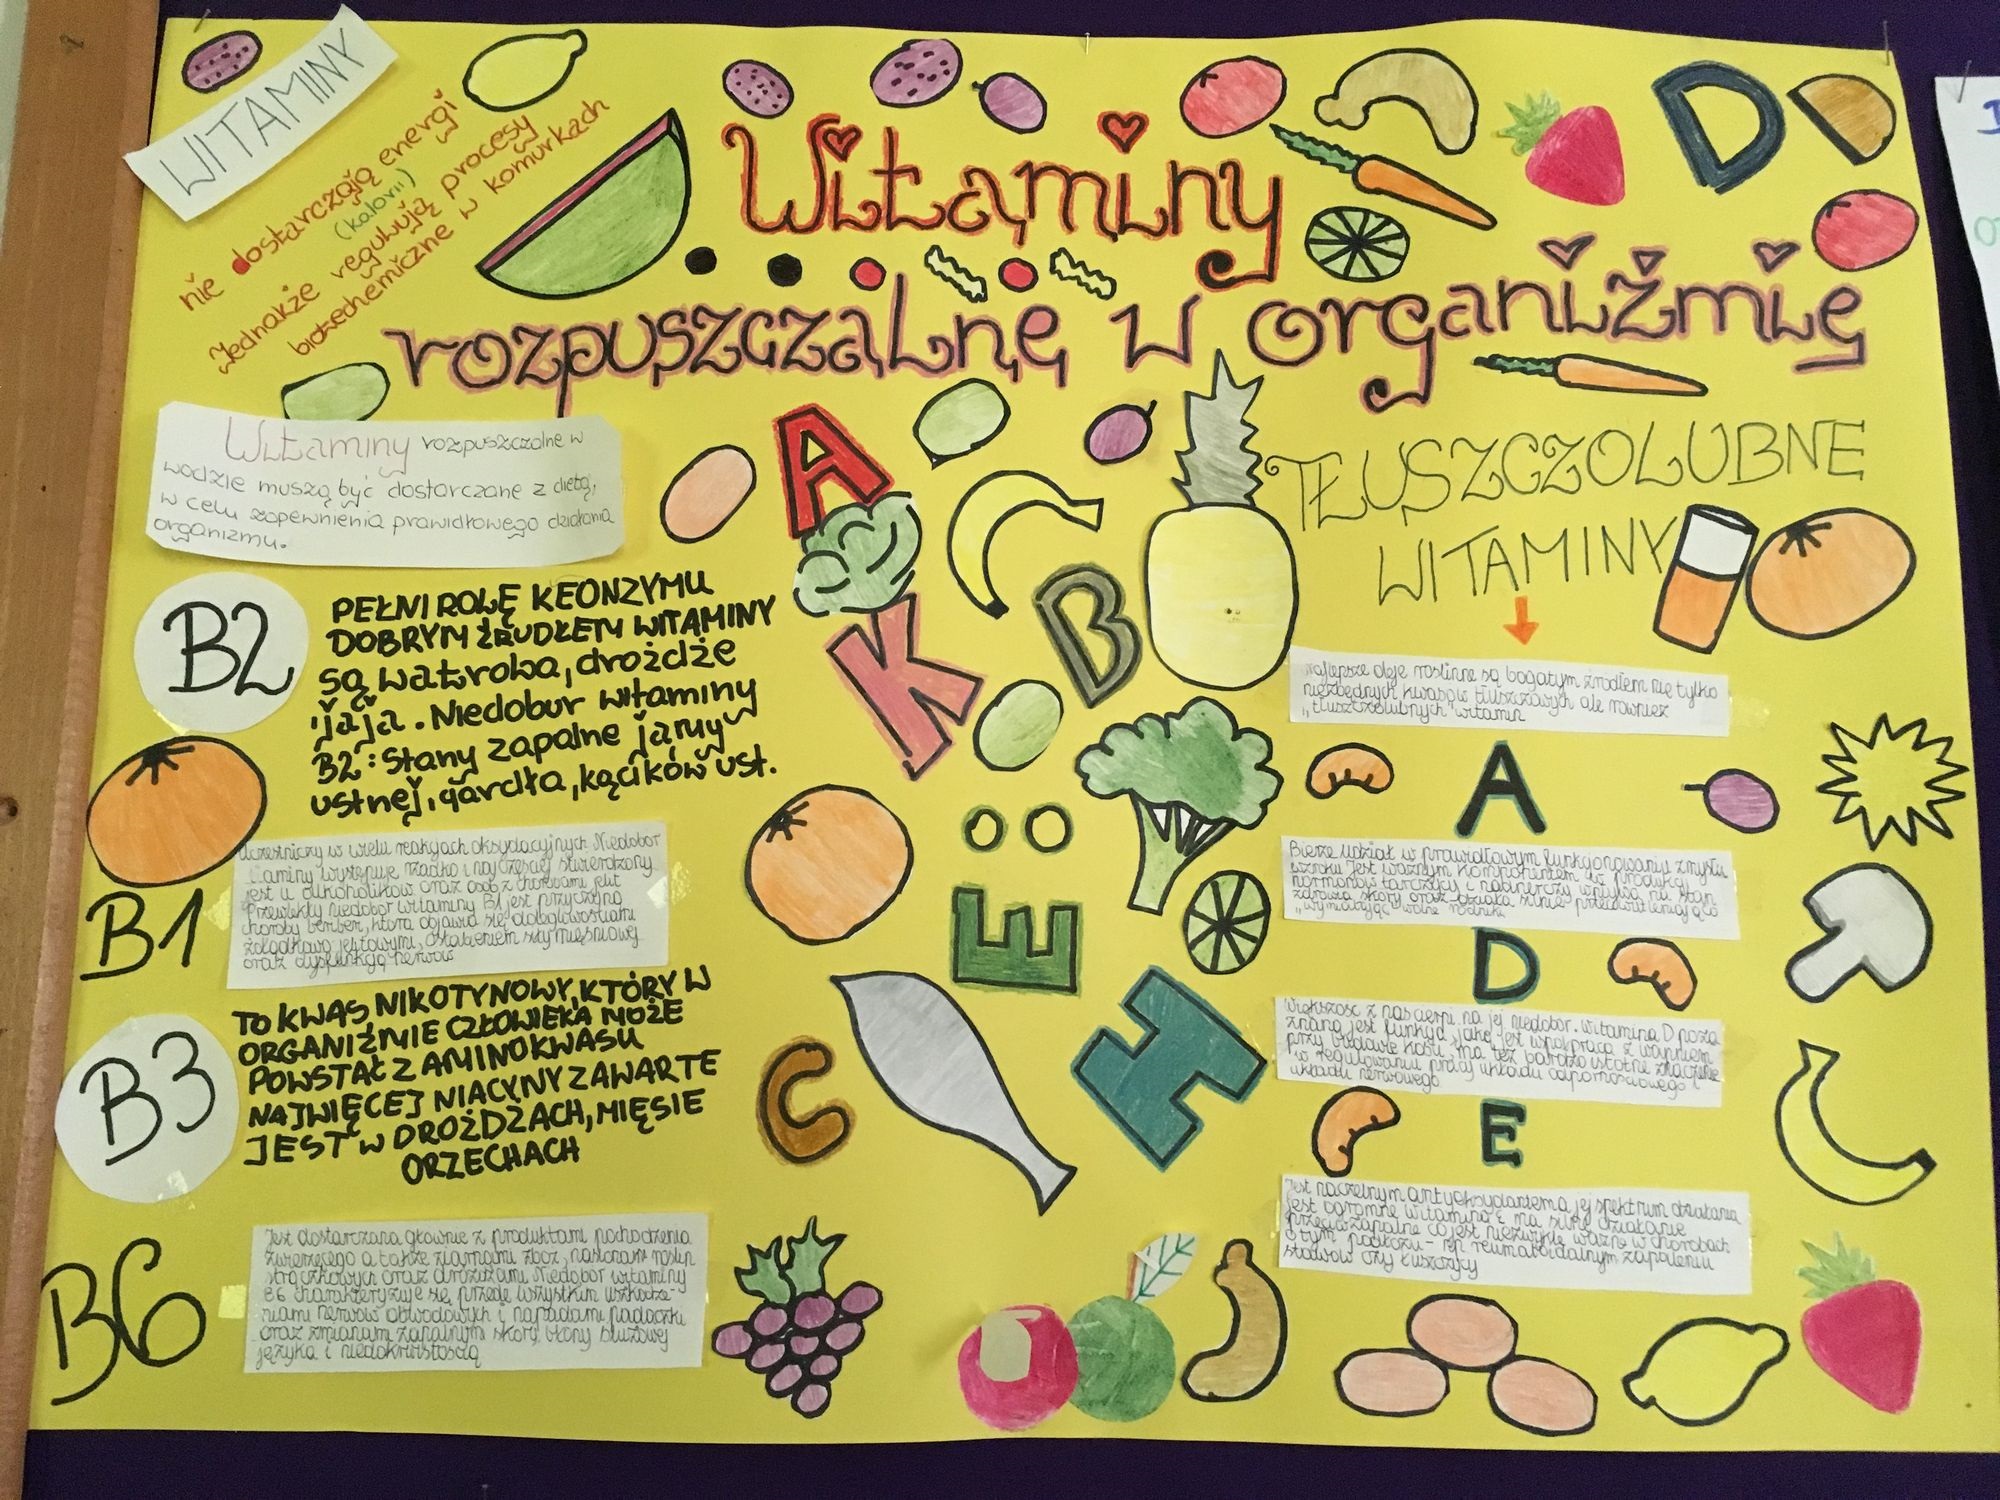 WITAMINY
nie dostarczają energi
(kalorii)
Jednakże regulują procesy
biotechemiczne w komurkach
Witaminy
rozpuszczalne w organiźmie
Witaminy rozpuszczalne w
wodzie muszą być dostarczane z dietą,
w celu zapewnienia prawidłowego działania
organizmu.
B2
PEŁNI ROLĘ KEONZYMU
DOBRYM ŹRUDŁEM WITAMINY
są wątroba, drożdże
jaja. Niedobur witaminy
B2: Stany zapalne jamy
ustnej, gardła, kącików ust.
B1
Uczestniczy w wielu reakcjach oksydacyjnych Niedobór
witaminy występuje rzadko i najczęściej stwierdzony
jest u alkoholików oraz osób z chorobami jelit
Przewlekły niedobór witaminy B1 jest przyczyną
choroby beriber, która objawia się dolegliwościami
żołądkowo jelitowymi, osłabieniem siły mięśniowej
oraz dysfunkcją nerwów
B3
TO KWAS NIKOTYNOWY, KTÓRY W
ORGANIŹMIE CZŁOWIEKA MOŻE
POWSTAĆ Z AMINOKWASU
NAJWIĘCEJ NIACYNY ZAWARTE
JEST W DROŻDŻACH, MIĘSIE
ORZECHACH
B6
Jest dostarczana głównie z produktami pochodzenia
zwierzęcego a także ziarnami zbóż, nasionami roślin
strączkowych oraz drożdżami Niedobór witaminy
B6 charakteryzuje się przede wszystkim uszkodze-
niami nerwów obwodowych i napadami padaczki
oraz zmianami zapalnymi skóry, błony śluzowej
języka i niedokrwistością
A
K
B
E
C
H
D
TŁUSZCZOLUBNE
WITAMINY
Najlepsze oleje roślinne są bogatym źródłem nie tylko
niezbędnych kwasów tłuszczowych ale również
„tłuszczolubnych" witamin
A
Bierze udział w prawidłowym funkcjonowaniu zmysłu
wzroku Jest ważnym komponentem w produkcji
hormonów tarczycy i nadnerczy wpływa na stan
zdrowia skóry oraz działa silnie przeciwutleniająco
„wymiatając" wolne rodniki
D
Większość z nas cierpi na jej niedobór. witamina D poza
znaną jest funkcją jaką jest współpraca z wapniem
przy budowie kości, ma też bardzo istotne znaczenie
w regulowaniu pracy układu odpornościowego i
układu nerwowego
E
Jest naczelnym antyoksydantem a jej spektrum działania
jest ogromne witamina E ma silne działanie
przeciwzapalne co jest niezwykle ważne w chorobach
o tym podłożu - np reumatoidalnym zapaleniu
stawów czy łuszczycy